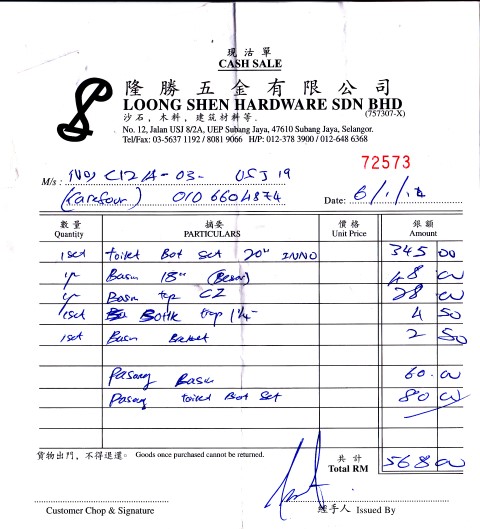 現沽單
CASH SALE
隆勝五金有限公司
LOONG SHEN HARDWARE SDN BHD
(757307-X)
沙石，木料，建筑材料等．
No. 12, Jalan USJ 8/2A, UEP Subang Jaya, 47610 Subang Jaya, Selangor.
Tel/Fax: 03-5637 1192 / 8081 9066 H/P: 012-378 3900 / 012-648 6368
72573
M/s : (No) C12A-03- USJ 19
(Carefour) 010 6604874
Date: 6/1/12
數量 摘要 價格 銀額
Quantity PARTICULARS Unit Price Amount
1set toilet Bot Set 20" INNO 345 00
Basin 18" (Besar) 48 00
Basin tap CZ 28 00
1set Bottle trap 1¼- 4 50
1set Basin Basket 2 50
Pasang Basin 60.00
Pasang toilet Bot Set 80 00
貨物出門，不得退還。 Goods once purchased cannot be returned.
共計
Total RM 568 00
Customer Chop & Signature
經手人 Issued By